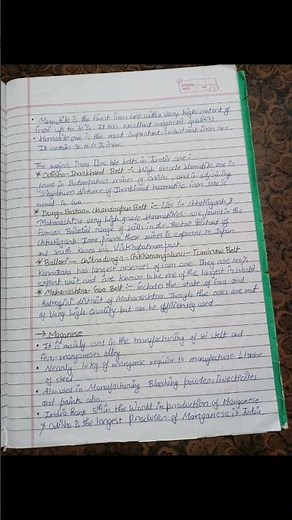 • Magnetite is the finest iron ore with a very high content of
iron up to 70%. It has excellent magnetic qualities
• Hematite ore is the most important industrial iron ore.
It contain 50 to 60% iron.
The major Iron Ore belts in India are:
* Odisha-Jharkhand Belt :- High grade Hematite ore is
found in
Singhbum district of Jharkhand haematite iron ore is
* Durg-Bastar-Chandrapur Belt :- Lies in Chhattisgarh &
Maharashtra very high grade Hematites are found in the
Famous Bailadila range of hills in the Bastar District of
Chhattisgarh. Iron from these mines is exported to Japan
and South Korea via Vishakhapatnam port.
* Ballari - Chitradurga - Chikkamagaluru - Tumkuru Belt
Karnataka has largest reserves of iron ore. They are 100%
export unit and are known to be one of the largest in world.
* Maharashtra - Goa Belt :- includes the state of Goa and
Ratnagiri district of Maharashtra. Though the ores are not
of very high quality but can be efficiently used
→ Manganese
• It is mainly used in the manufacturing of steel and
ferro manganese alloy.
• Nearly 10 kg of manganese require to manufacture 1 tonne
of steel
• Also used in Manufacturing Bleaching powder, insecticides
and paints also.
• India Rank 5th in the World in production of Manganese
* Odisha is the largest producer of Manganese in India